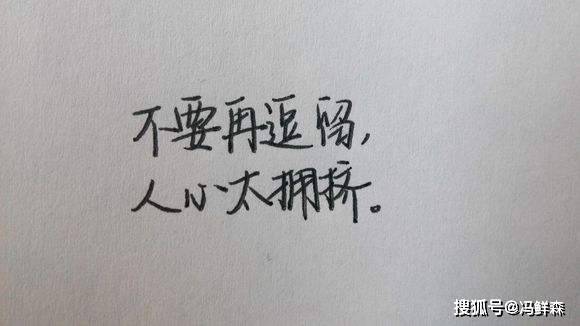 不要再逗留,
人心太拥挤。
搜狐号@冯鲜森